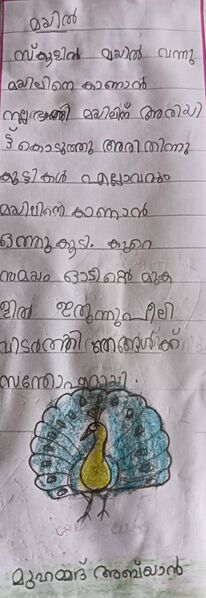 മയിൽ
സ്കൂളിൽ മയിൽ വന്നു
മയിലിനെ കാണാൻ
നല്ല ഭംഗി മയിലിന് അരിയി
ട്ട് കൊടുത്തു അരി തിന്നു
കുട്ടികൾ എല്ലാവരും
മയിലിനെ കാണാൻ
ഒത്തുകൂടി. കുറെ
സമയം ഓടിന്റെ മുക
ളിൽ ഇരുന്നു പീലി
വിടർത്തി ഞങ്ങൾക്ക്
സന്തോഷമായി.
മുഹമ്മദ് അബിയാൻ